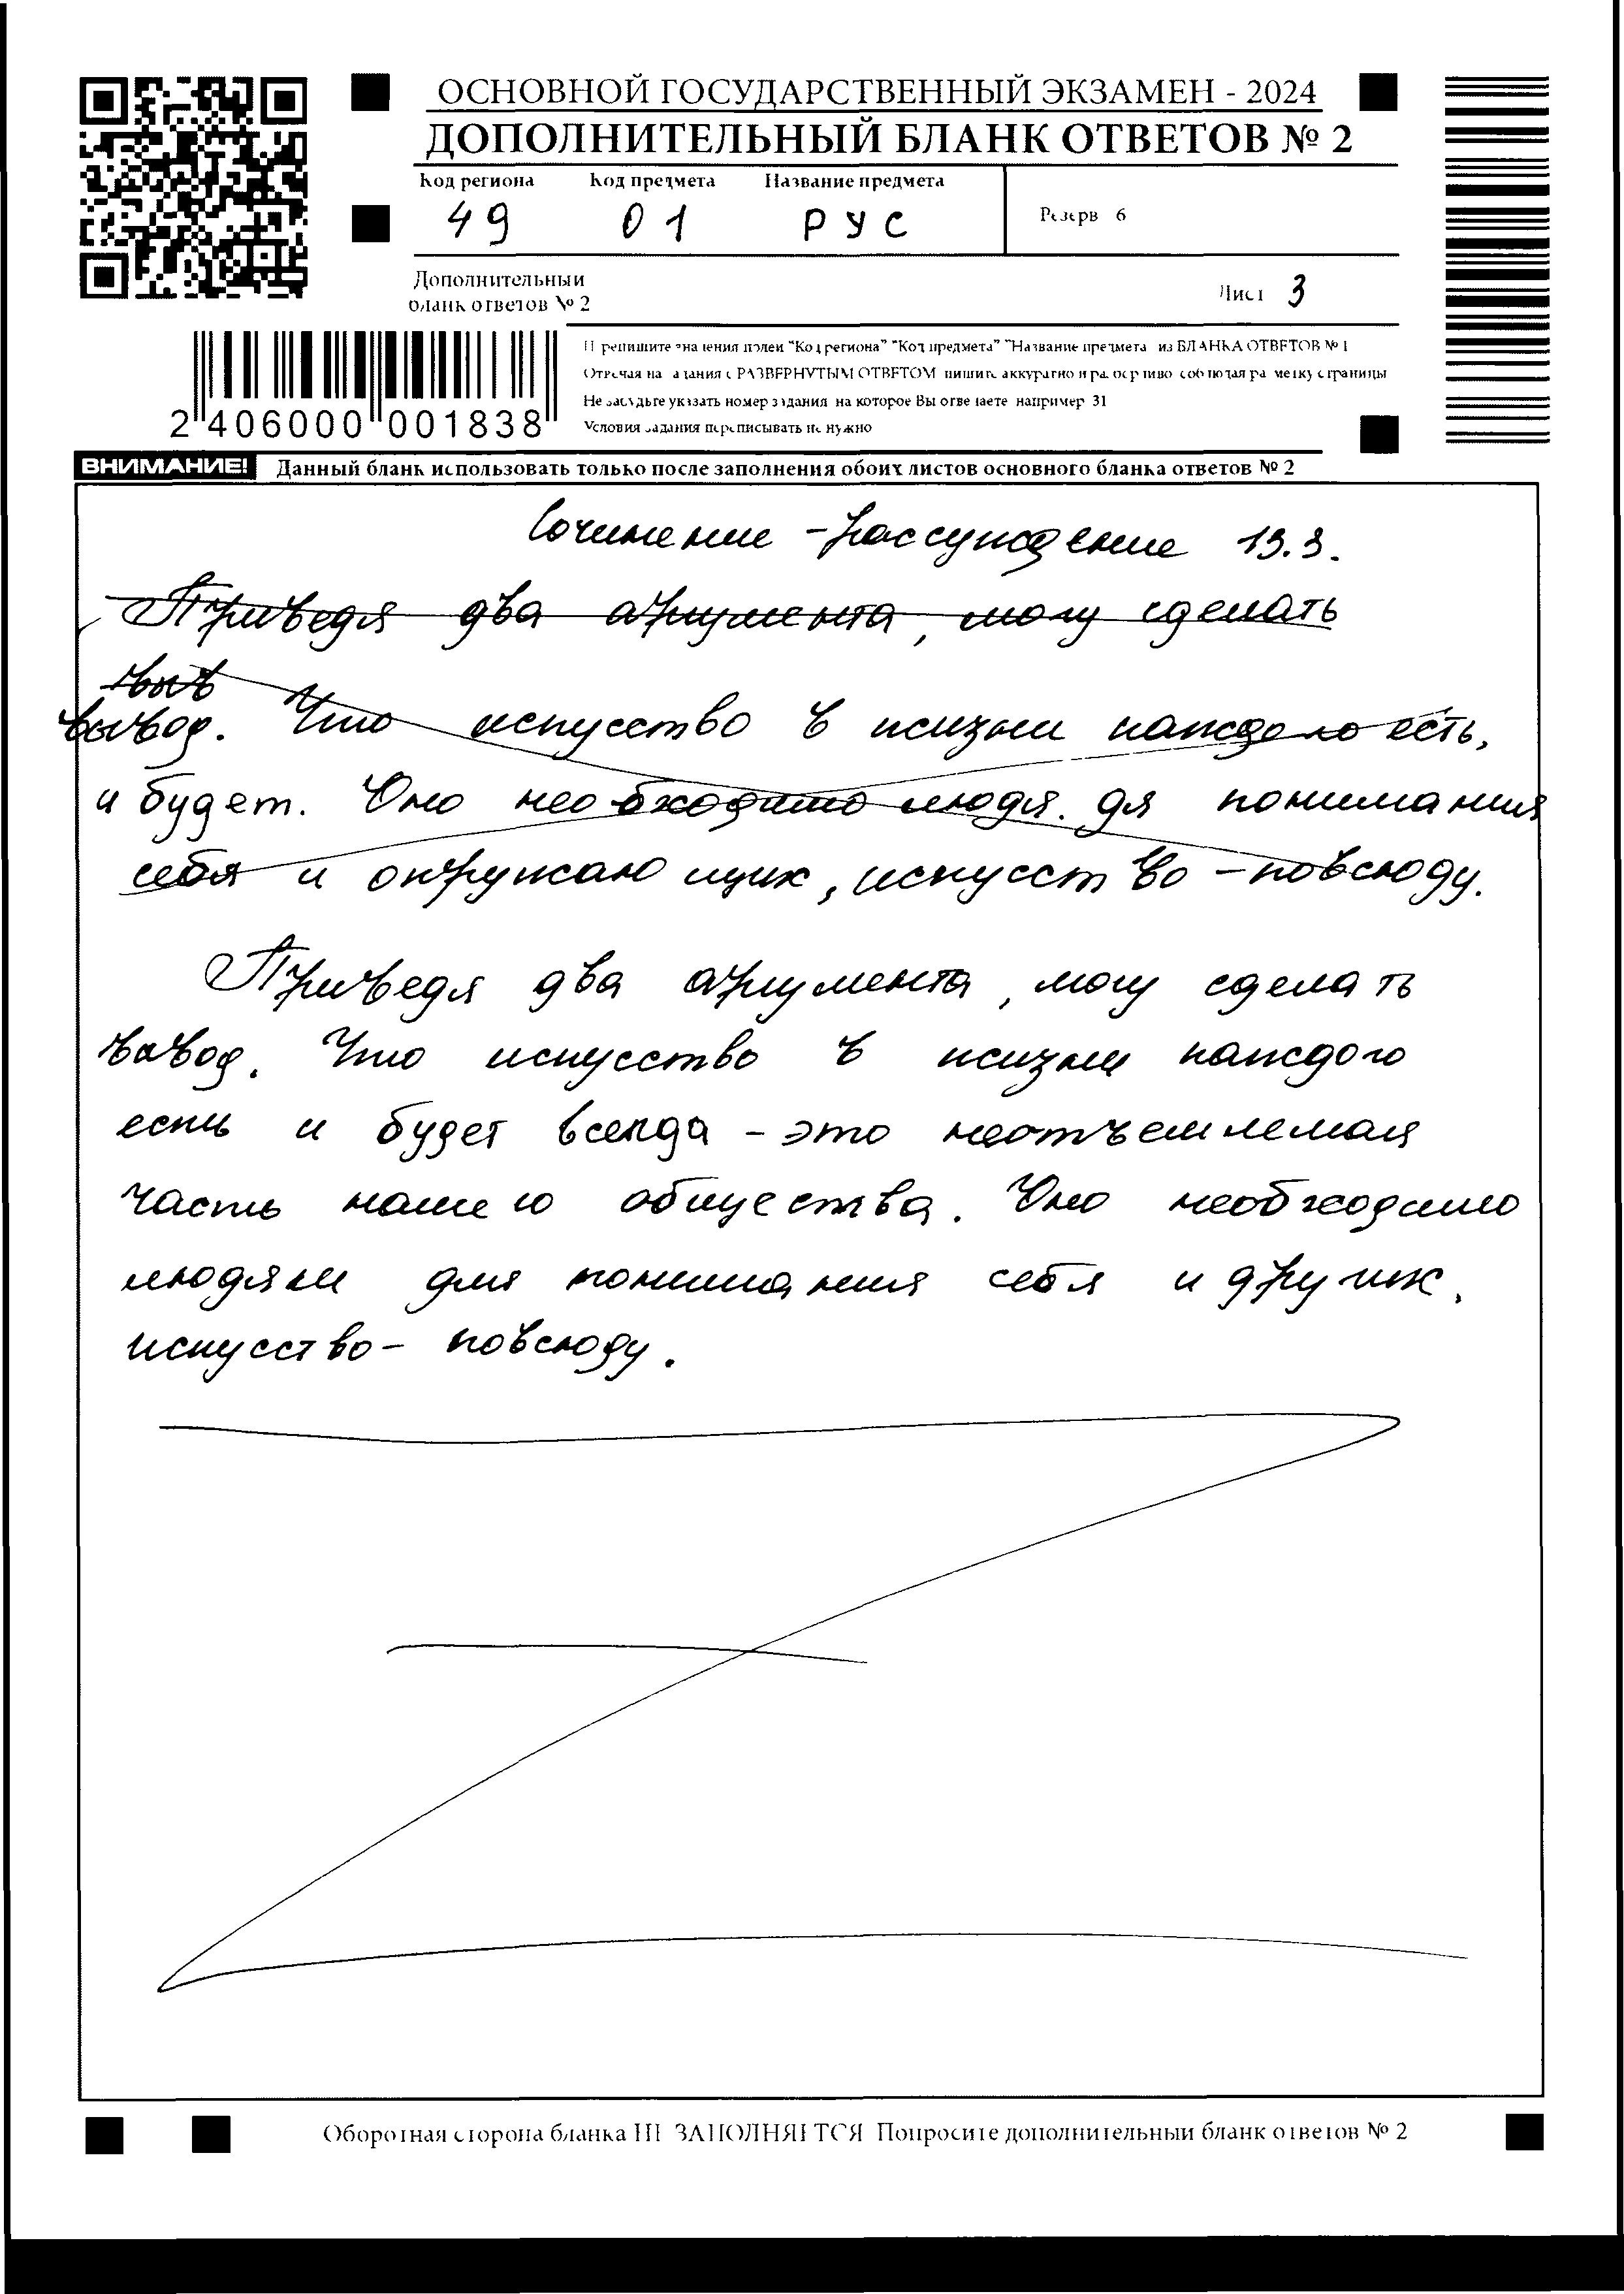 ОСНОВНОЙ ГОСУДАРСТВЕННЫЙ ЭКЗАМЕН - 2024
ДОПОЛНИТЕЛЬНЫЙ БЛАНК ОТВЕТОВ № 2
Код региона Код предмета Название предмета
49 01 РУС
Резерв 6
Дополнительный
бланк ответов № 2
Лист 3
Перепишите значения полей "Код региона" "Код предмета" "Название предмета" из БЛАНКА ОТВЕТОВ № 1
Отвечая на задания с РАЗВЕРНУТЫМ ОТВЕТОМ пишите аккуратно и разборчиво соблюдая разметку страницы
Не забудьте указать номер задания на которое Вы отвечаете например 31
Условия задания переписывать не нужно
2 406000 001838
ВНИМАНИЕ! Данный бланк использовать только после заполнения обоих листов основного бланка ответов № 2
Сочинение - рассуждение 13.3.
Приведя два аргумента, могу сделать
выв
вывод. Что искусство в жизни каждого есть,
и будет. Оно необходимо людя. дя понимания
себя и окружающих, искусство - повсюду.
Приведя два аргумента, могу сделать
вывод. Что искусство в жизни каждого
есть и будет всегда - это неотъемлемая
часть нашего общества. Оно необходимо
людям для понимания себя и других,
искусство - повсюду.
Оборотная сторона бланка НЕ ЗАПОЛНЯЕТСЯ Попросите дополнительный бланк ответов № 2